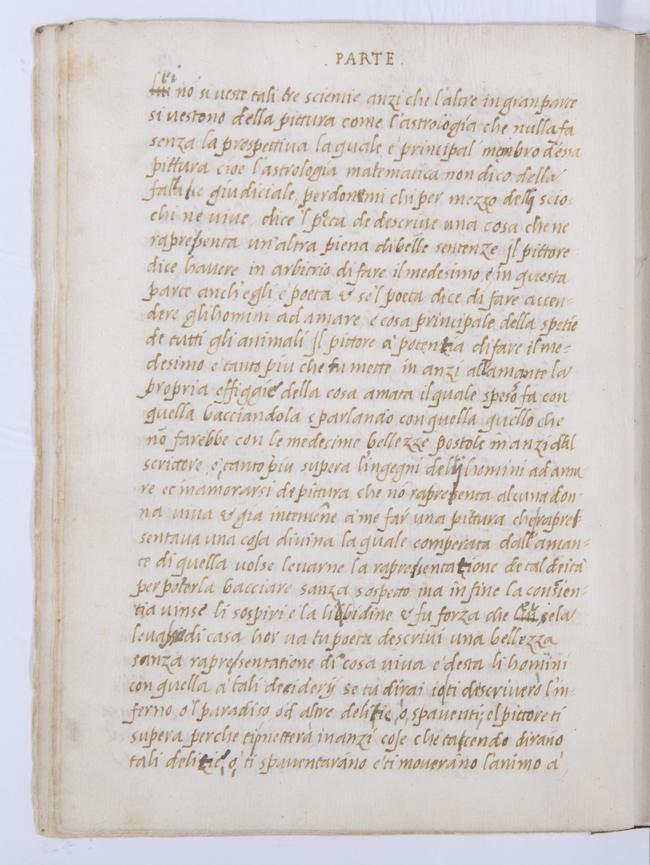 . PARTE .
lui ei nõ si veste tali tre scientie anzi che l'altre in gran parte
si vestono della pittura come l'astrologia che nulla fa
senza la prospettiva la quale è principal menbro d'essa
pittura cioe l'astrologia matematica non dico della
fallace giudiciale, perdonemi chi per mezzo delli scio-
chi ne vive, dice 'l poeta de descrive una cosa che ne
rapresenta un'altra piena di belle sentenze Jl pittore
dice havere in arbitrio di fare il medesimo e in questa
parte anch'egli è poeta & se 'l poeta dice di fare accen-
dere gli homini ad amare è cosa principale della spetie
de tutti gli animali Jl pittore à potentia di fare il me-
desimo e tanto piu che lui mette in anzi all'amante la
propria effiggie della cosa amata il quale speso fa con
quella bacciandola e parlando con quella quello che
nõ farebbe con le medecime bellezze postole inanzi dal
scrittore, e tanto piu supera l'ingegni delli homini ad ama
re et inamorarsi de pittura che nõ rapresenta alcuna don
na viva & gia interviẽne à me far una pittura che rapre-
sentava una cosa divina la quale comperata dall'aman-
te di quella volse levarne la rapresentatione de tal deità
per poterla bacciare sanza sospeto ma in fine la consien-
tia vinse li sospiri e la libbidine & fu forza che lui se la
levasse di casa hor va tu poeta descrivi una bellezza
sanza rapresentatione di cosa viva e desta li homini
con quella a' tali desiderij se tu dirai io ti descriverò l'in-
ferno, o 'l paradiso od altre delitie, o spaventi, el pittore ti
supera perche ti metterà inanzi cose che tacendo dirano
tali delitie, o ti spaventarano e ti moverãno l'animo à